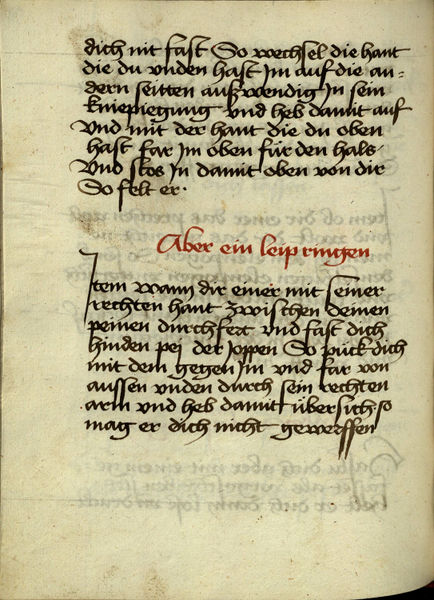 dich nit fast So wechsel die hant
die du vnden hast Jm auf die an=
dern seitten auswendig Jn sein
kniepiegung vnd heb damit auf
Vnd mit der hant die du oben
hast far Jm oben für den hals
Vnd stos Jn damit oben von dir
So felt er.
Aber ein leip ringen
Jtem wann dir einer mit seiner
rechten hant zwischen deinen
peinen durchfert vnd fast dich
hinden pei der Joppen So pück dich
mit dem gegen Jm vnd far von
aussen vnden durch sein rechten
arm vnd heb damit übersich so
mag er dich nicht gewerffen